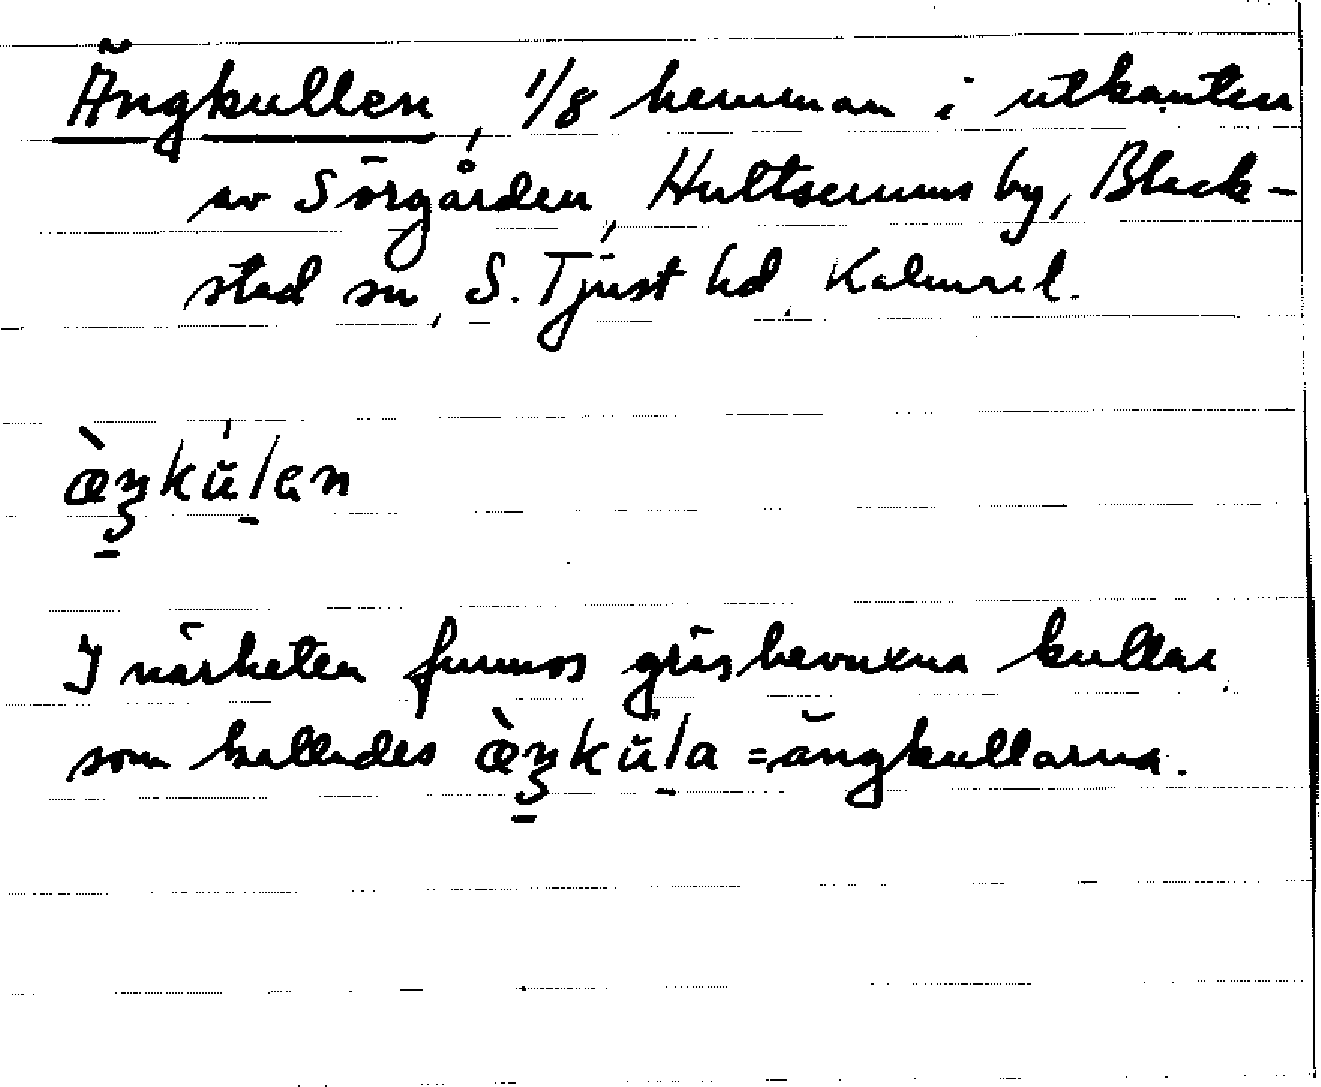 Ängkullen, 1/8 hemman i utkanten
av Sörgården, Hultserums by, Black-
stad sn, S. Tjust hd, Kalmar l.
æ̀ŋkúlen
I närheten funnos gräsbevuxna kullar,
som kallades æ̀ŋkúla = ängkullarna.